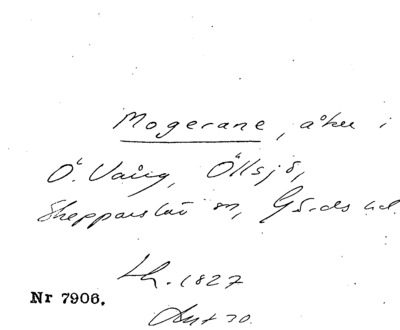 Mogerane, åker i
Ö. Vång, Ollsjö,
Skepparslöv sn, Gärds hd.
Lh. 1827
Nr 7906.